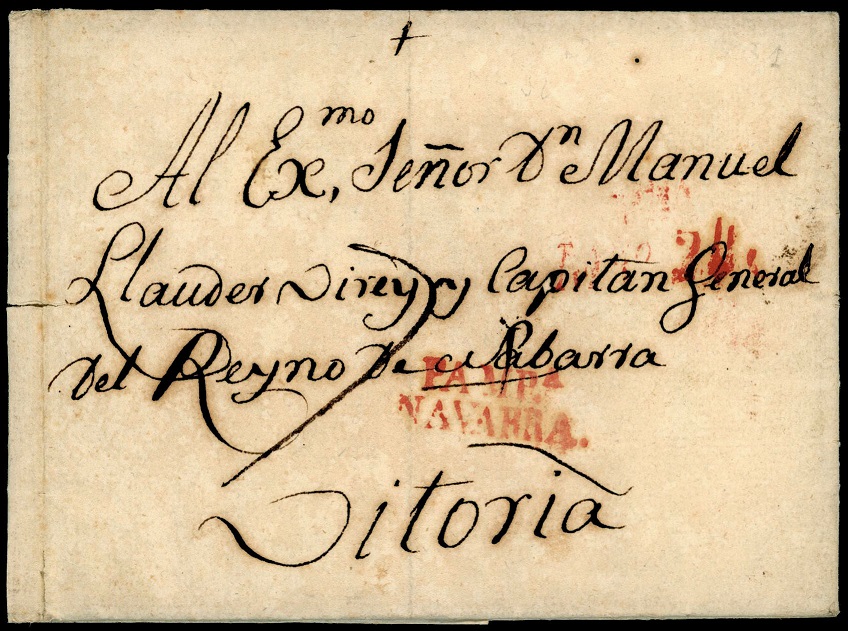 Al Exmo, Señor Dn Manuel
Llauder Virey y Capitan General
del Reyno de Nabarra
PAMPA
NAVARRA.
Vitoria